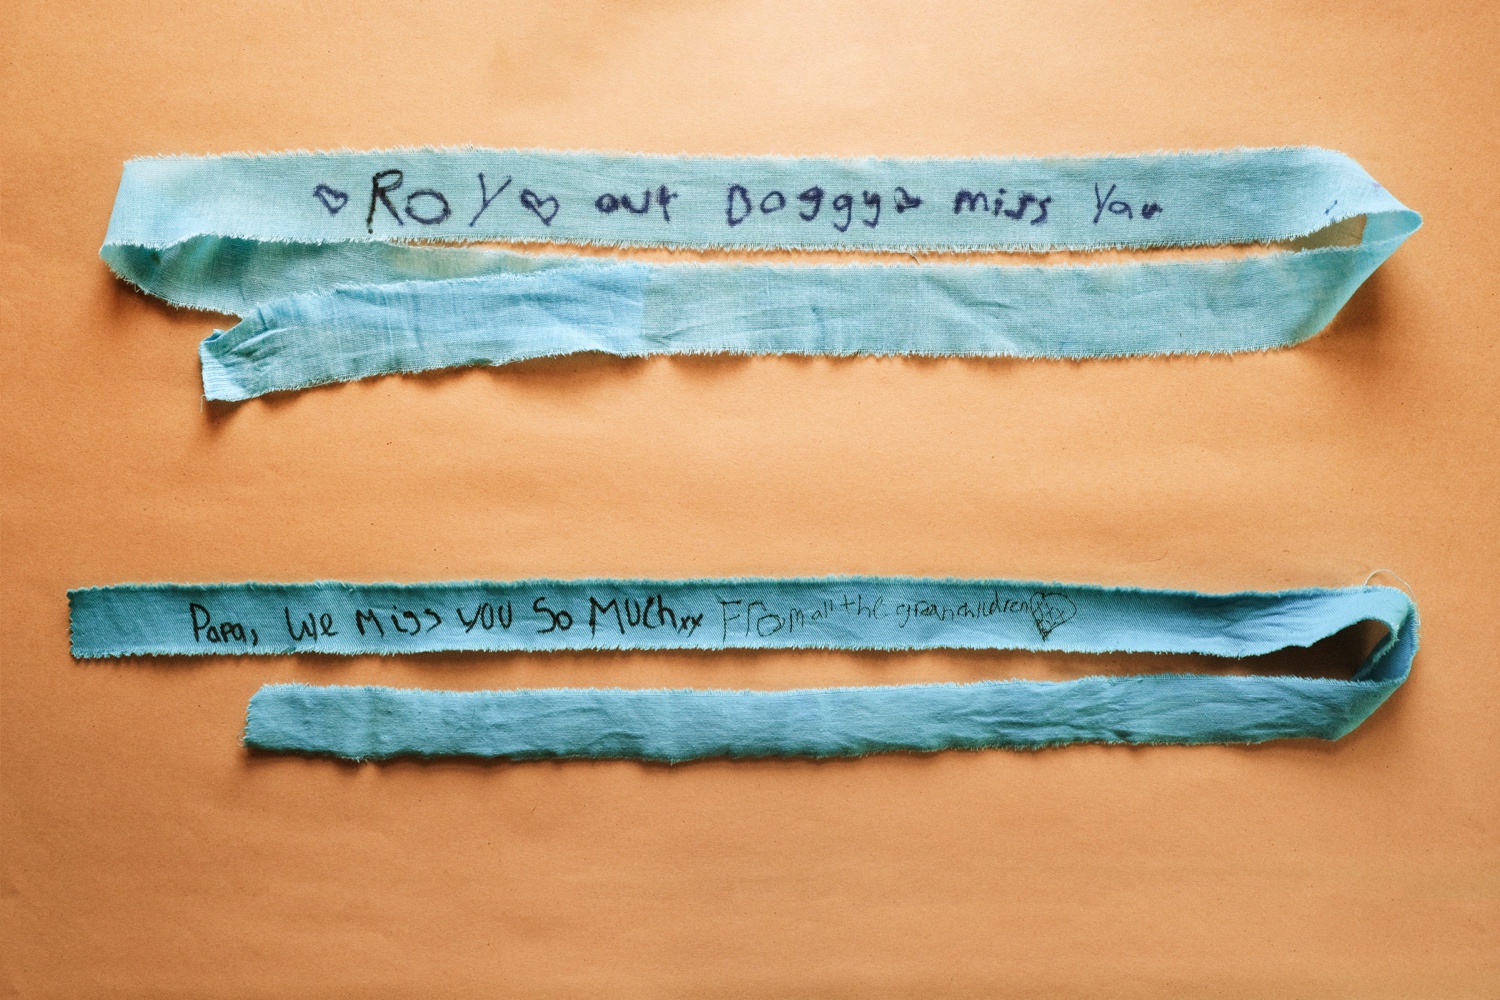 ♡ ROY ♡ out Doggy ♡ miss You
Papa, We miss you So Much xx From all the graanchildren ♡